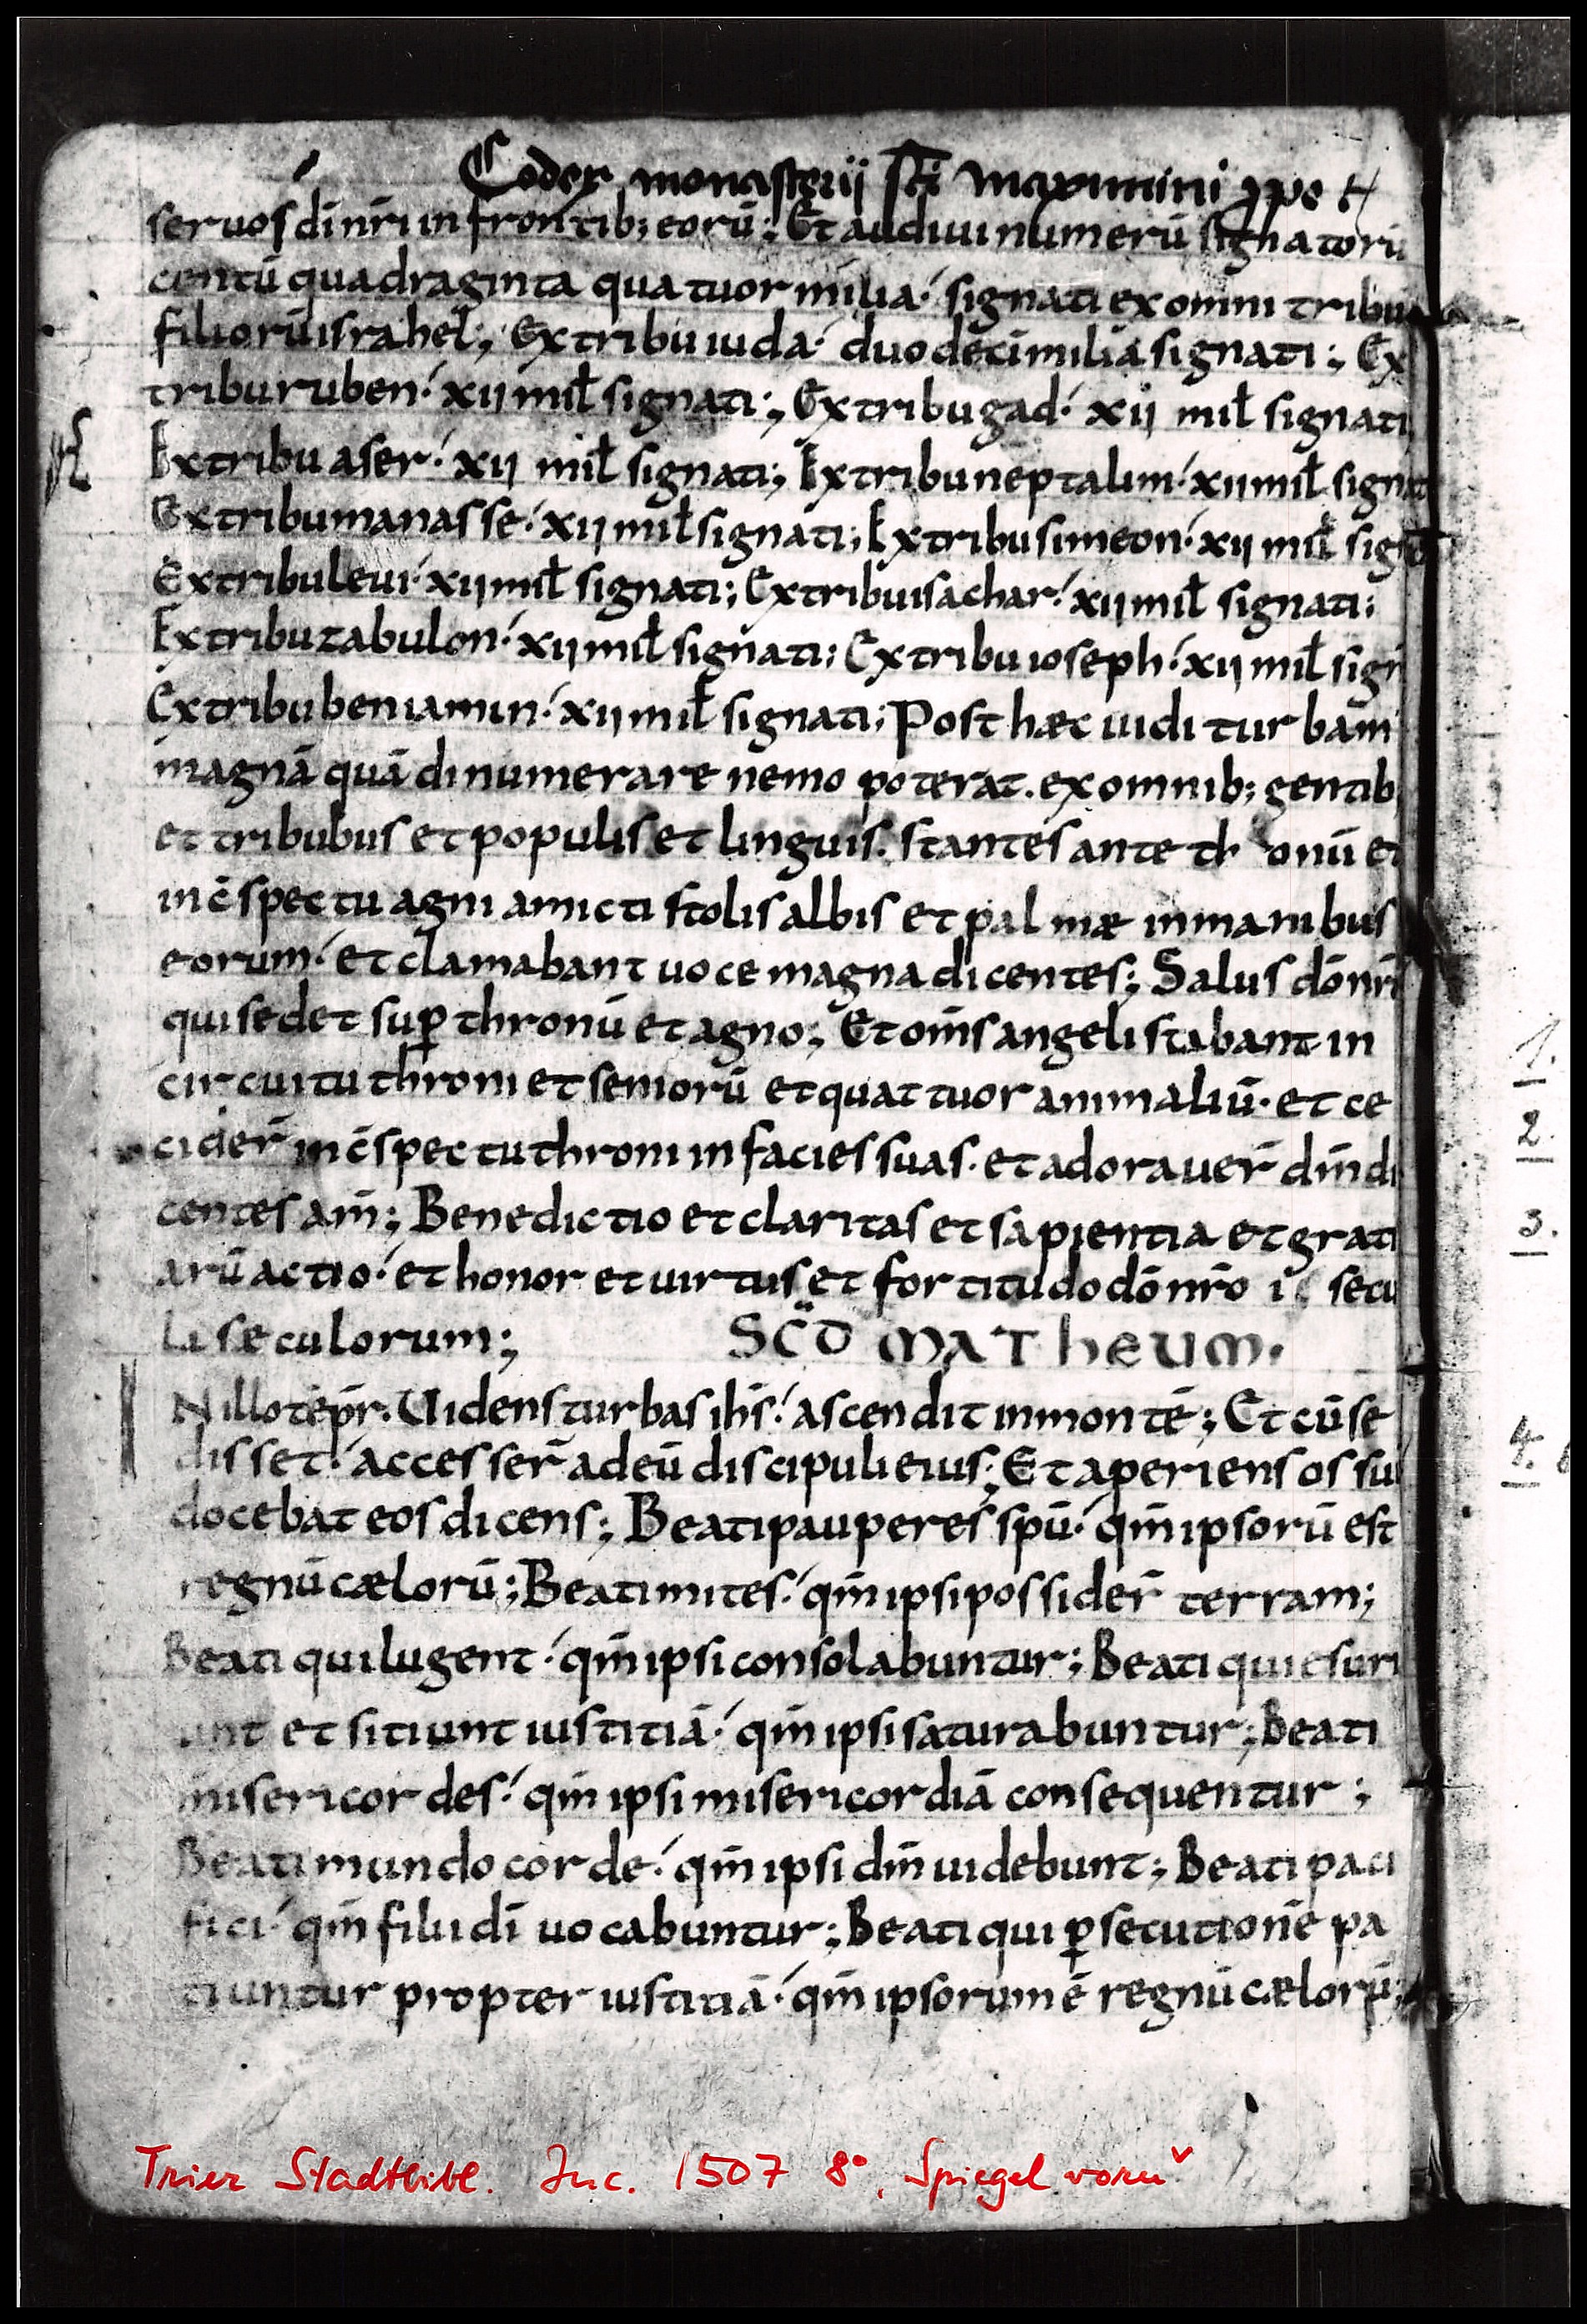 Codex monasterii sci Maximini ppe t
seruos dī nr̄i in frontib; eorū; Et audiui numerū signatorū
centū quadraginta quatuor milia. signati ex omni tribu
filiorū israhel; Ex tribu iuda. duodecī milia signati; Ex
tribu ruben. xii mil̄ signati; Ex tribu gad. xii mil̄ signati
Ex tribu aser. xii mil̄ signati; Ex tribu neptalim. xii mil̄ signat
Ex tribu manasse. xii mil̄ signati; Ex tribu simeon. xii mil̄ sig
Ex tribu leui. xii mil̄ signati; Ex tribu isachar. xii mil̄ signati;
Ex tribu zabulon. xii mil̄ signati; Ex tribu ioseph. xii mil̄ sign
Ex tribu beniamin. xii mil̄ signati; Post hæc uidi turbam
magnā quā dinumerare nemo poterat. ex omnib; gentib
et tribubus et populis et linguis. stantes ante thronū et
in c̄spectu agni amicti stolis albis et palmæ in manibus
eorum. et clamabant uoce magna dicentes; Salus dō nr̄i
qui sedet sup̄ thronū et agno; Et om̄s angeli stabant in
circuitu throni et seniorū et quattuor animaliū. et ce
cider̄ in c̄spectu throni in facies suas. et adorauer̄ dm̄ di
centes am̄; Benedictio et claritas et sapientia et grati
arū actio. et honor et uirtus et fortitudo dō nr̄o i secu
la seculorum; SCD̄ MATHEUM.
N illo tēpr̄. Uidens turbas ih̄s. ascendit in montē; Et cū se
disset. accesser̄ ad eū discipuli eius; Et aperiens os su
docebat eos dicens; Beati pauperes spū. qm̄ ipsorū est
regnū cælorū; Beati mites. qm̄ ipsi possider̄ terram;
Beati qui lugent. qm̄ ipsi consolabuntur; Beati qui esuri
unt et sitiunt iustitiā. qm̄ ipsi saturabuntur; Beati
misericordes. qm̄ ipsi misericordiā consequentur;
Beati mundo corde. qm̄ ipsi dm̄ uidebunt; Beati paci
fici. qm̄ filii dī uocabuntur; Beati qui p̄secutionē pa
tiuntur propter iustitiā. qm̄ ipsorum ē regnū cælorū;
Trier Stadtbibl. Inc. 1507 8°, Spiegel vorn
1.
2.
3.
4.